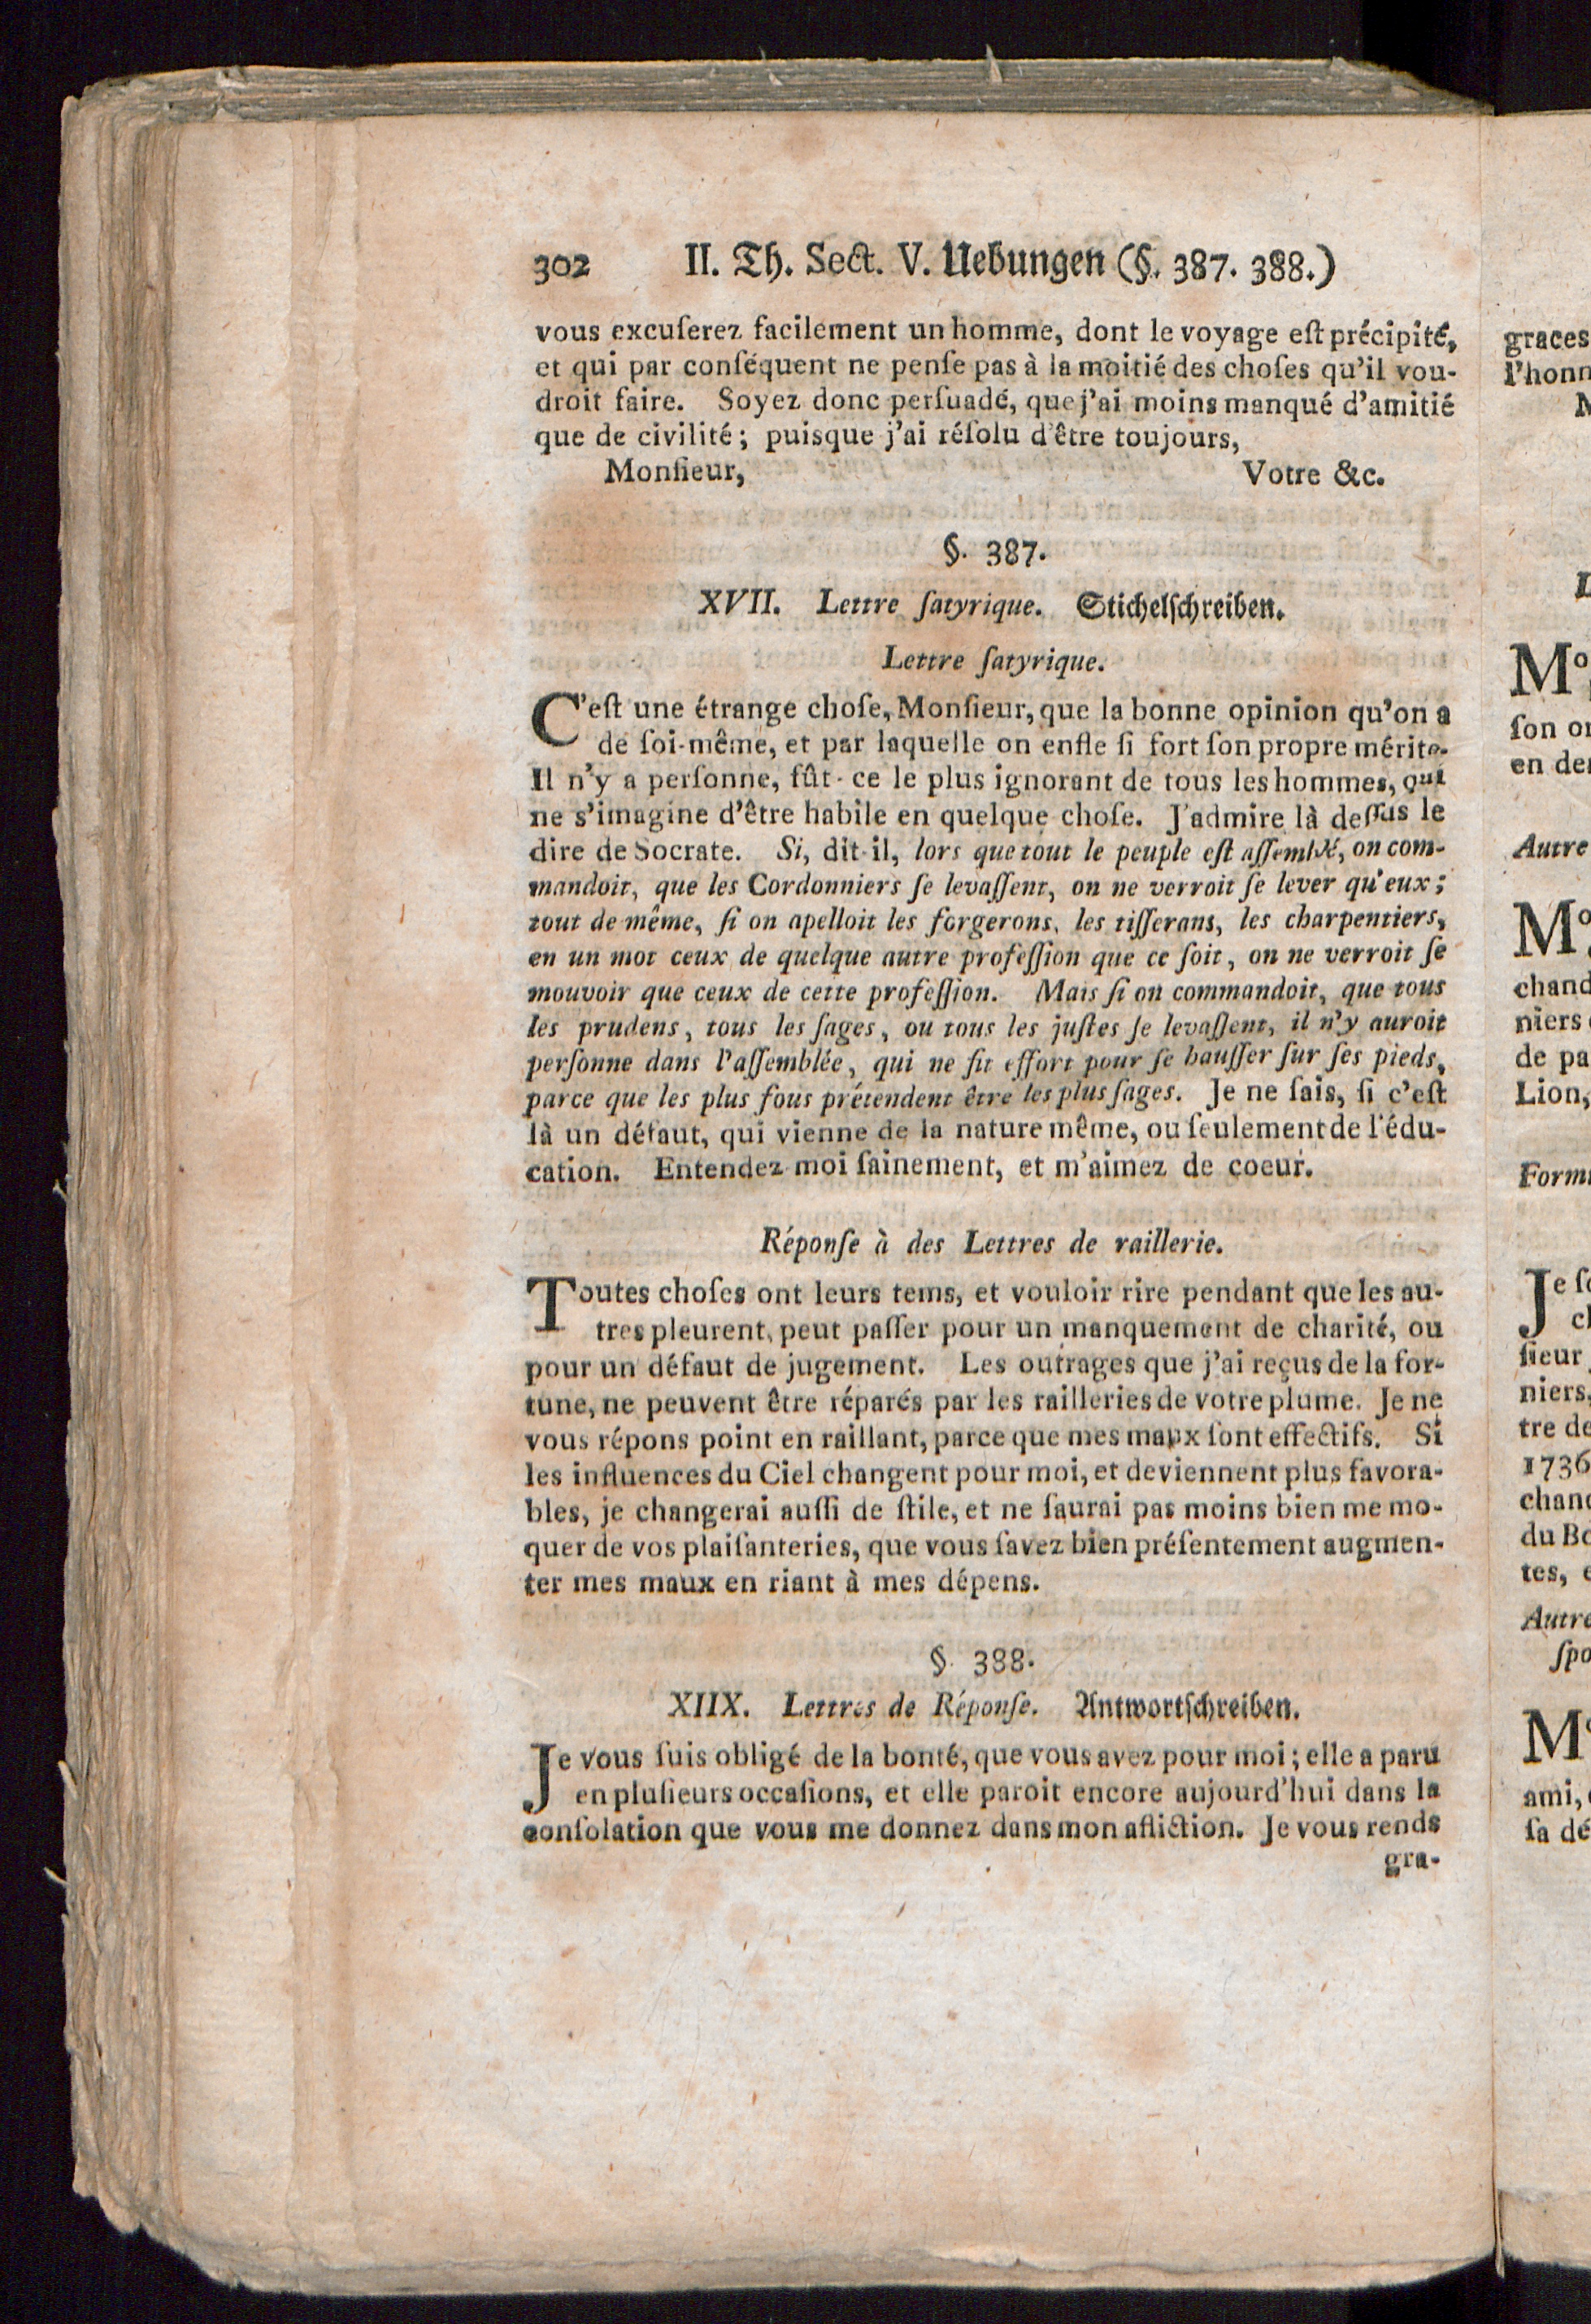 302 II. Th. Sect. V. Uebungen (§. 387. 388.)
vous excuſerez facilement un homme, dont le voyage eſt précipité,
et qui par conſéquent ne penſe pas à la moitié des choſes qu'il vou-
droit faire. Soyez donc perſuadé, que j'ai moins manqué d'amitié
que de civilité; puisque j'ai réſolu d'être toujours,
Monſieur, Votre &c.
§. 387.
XVII. Lettre ſatyrique. Stichelſchreiben.
Lettre ſatyrique.
C'eſt une étrange choſe, Monſieur, que la bonne opinion qu'on a
de ſoi-même, et par laquelle on enfle ſi fort ſon propre mérite.
Il n'y a perſonne, fût-ce le plus ignorant de tous les hommes, qui
ne s'imagine d'être habile en quelque choſe. J'admire là deſſus le
dire de Socrate. Si, dit-il, lors que tout le peuple eſt aſſemblé, on com-
mandoit, que les Cordonniers ſe levaſſent, on ne verroit ſe lever qu'eux;
tout de même, ſi on apelloit les forgerons, les tiſſerans, les charpentiers,
en un mot ceux de quelque autre profeſſion que ce ſoit, on ne verroit ſe
mouvoir que ceux de cette profeſſion. Mais ſi on commandoit, que tous
les prudens, tous les ſages, ou tous les juſtes ſe levaſſent, il n'y auroit
perſonne dans l'aſſemblée, qui ne fit effort pour ſe hauſſer ſur ſes pieds,
parce que les plus fous prétendent être les plus ſages. Je ne ſais, ſi c'eſt
là un défaut, qui vienne de la nature même, ou ſeulement de l'édu-
cation. Entendez-moi ſainement, et m'aimez de coeur.
Réponſe à des Lettres de raillerie.
Toutes choſes ont leurs tems, et vouloir rire pendant que les au-
tres pleurent, peut paſſer pour un manquement de charité, ou
pour un défaut de jugement. Les outrages que j'ai reçus de la for-
tune, ne peuvent être réparés par les railleries de votre plume. Je ne
vous répons point en raillant, parce que mes maux ſont effectifs. Si
les influences du Ciel changent pour moi, et deviennent plus favora-
bles, je changerai auſſi de ſtile, et ne ſaurai pas moins bien me mo-
quer de vos plaiſanteries, que vous ſavez bien préſentement augmen-
ter mes maux en riant à mes dépens.
§. 388.
XIIX. Lettres de Réponſe. Antwortſchreiben.
Je vous ſuis obligé de la bonté, que vous avez pour moi; elle a paru
en pluſieurs occaſions, et elle paroit encore aujourd'hui dans la
conſolation que vous me donnez dans mon afliction. Je vous rends
gra-
graces
l'honn
ſon
en
Autre
chand
niers
de pa
Lion,
Je
ſieur
niers,
tre de
1736
du
tes,
Autre
ami,
ſa dé